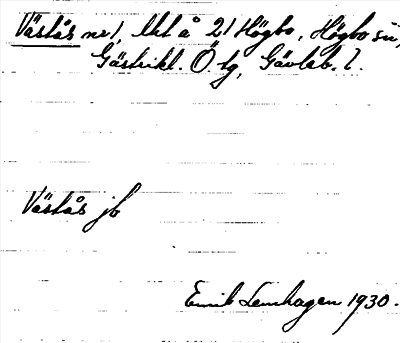 Västås nr 1, lht å 21 Högbo, Högbo sn,
Gästrikl. Ö. tg, Gävleb. l.
Västås jb
Emik Lenhagen 1930.